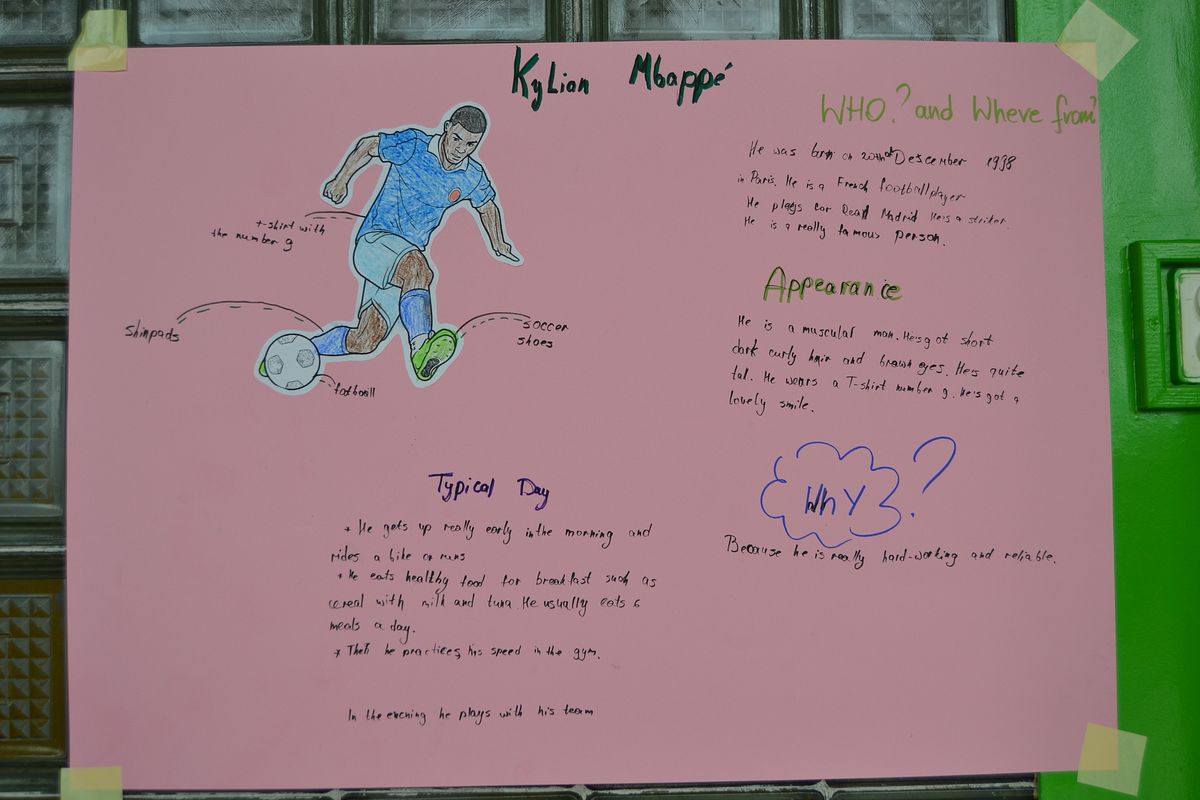 Kylian Mbappé
WHO? and Where from?
He was born on 20th of Descember 1998
in Paris. He is a French footballplayer
He plays for Real Madrid He's a striker.
He is a really famous person.
t-shirt with
the number 9
shinpads
soccer
shoes
footbaill
Appearance
He is a musculal man. He's got short
dark curly hair and brawn eyes. He's quite
tal. He wears a T-shirt number 9. He's got a
lovely smile.
Why?
Because he is really hard-working and reliable.
Typical Day
* He gets up really early in the morning and
rides a bike or runs
* He eats healthy food for breakfast such as
cereal with milk and tuna. He usually eats 6
meals a day.
* Then he practices his speed in the gym.
In the evening he plays with his team